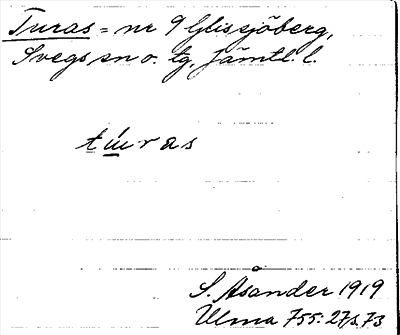 Turas = nr 9 Glissjöberg,
Svegs sn o. tg, Jämtl. l.
túras
S. Åsander 1919
Ulma 755:27 s. 73